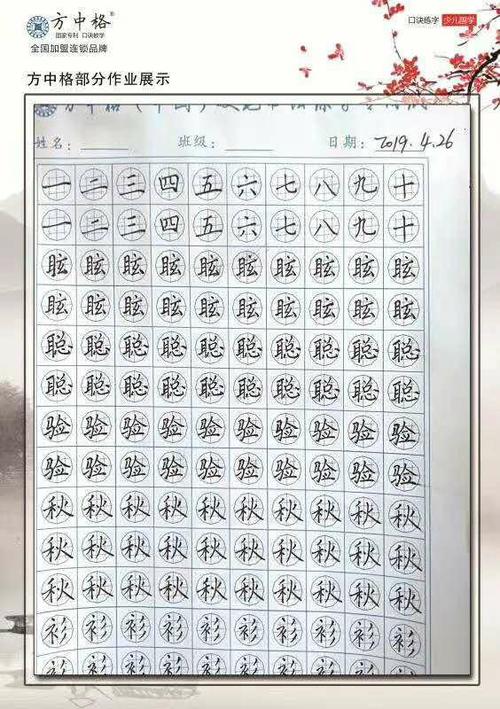 方中格®
国家专利 口诀教学
全国加盟连锁品牌
口诀练字 少儿国学
方中格部分作业展示
姓名: 班级: 日期: 2019.4.26
一 二 三 四 五 六 七 八 九 十
一 二 三 四 五 六 七 八 九 十
眩 眩 眩 眩 眩 眩 眩 眩 眩 眩
眩 眩 眩 眩 眩 眩 眩 眩 眩 眩
聪 聪 聪 聪 聪 聪 聪 聪 聪 聪
聪 聪 聪 聪 聪 聪 聪 聪 聪 聪
验 验 验 验 验 验 验 验 验 验
验 验 验 验 验 验 验 验 验 验
秋 秋 秋 秋 秋 秋 秋 秋 秋 秋
秋 秋 秋 秋 秋 秋 秋 秋 秋 秋
秋 秋 秋 秋 秋 秋 秋 秋 秋 秋
衫 衫 衫 衫 衫 衫 衫 衫 衫 衫
衫 衫 衫 衫 衫 衫 衫 衫 衫 衫